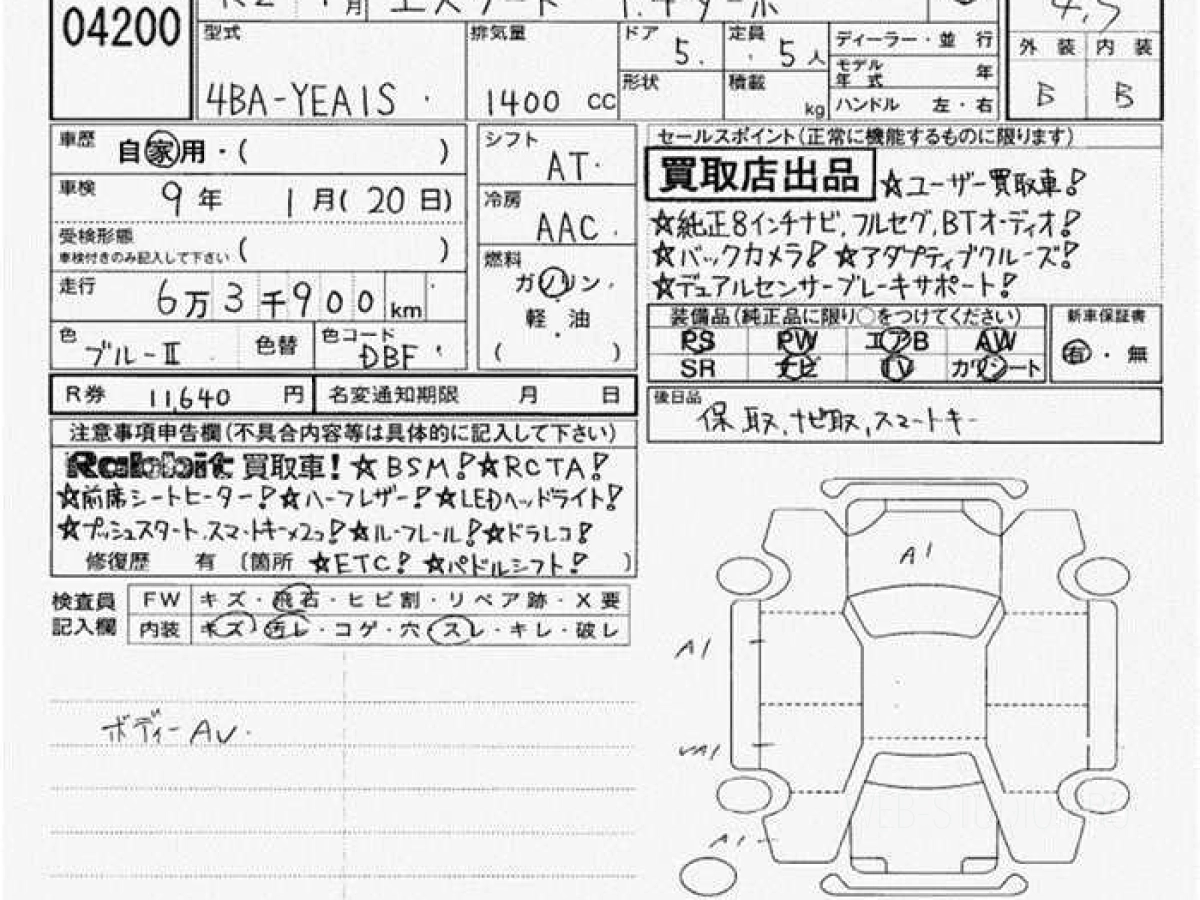 04200
R2 1月 エスクード 1.4ターボ 4.5
型式 4BA-YEA1S
排気量 1400 cc
ドア 5. 定員 5人
形状 積載 kg
ディーラー・並行
モデル年式 年
ハンドル 左・右
外装 内装
B B
車歴 自家用・( )
車検 9年 1月(20日)
受検形態
車検付きのみ記入して下さい ( )
走行 6万3千900km
色 ブルーII 色替 色コード DBF
シフト AT
冷房 AAC
燃料 ガソリン・
軽・油
( )
R券 11,640円 名変通知期限 月 日
セールスポイント(正常に機能するものに限ります)
買取店出品 ☆ユーザー買取車!
☆純正8インチナビ,フルセグ,BTオーディオ!
☆バックカメラ!☆アダプティブクルーズ!
☆デュアルセンサーブレーキサポート!
装備品(純正品に限り○をつけてください)
PS PW エアB AW
SR ナビ TV カワシート
新車保証書
有・無
後日品
保取,ナビ取,スマートキー
注意事項申告欄(不具合内容等は具体的に記入して下さい)
Rabbit買取車!☆BSM!☆RCTA!
☆前席シートヒーター!☆ハーフレザー!☆LEDヘッドライト!
☆プッシュスタート.スマートキー×2コ!☆ルーフレール!☆ドラレコ!
修復歴 有 〔箇所 ☆ETC!☆パドルシフト! )
検査員記入欄
FW キズ・飛石・ヒビ割・リペア跡・X要
内装 キズ・汚レ・コゲ・穴・スレ・キレ・破レ
ボディーAU.
A1
A1
UA1
A1